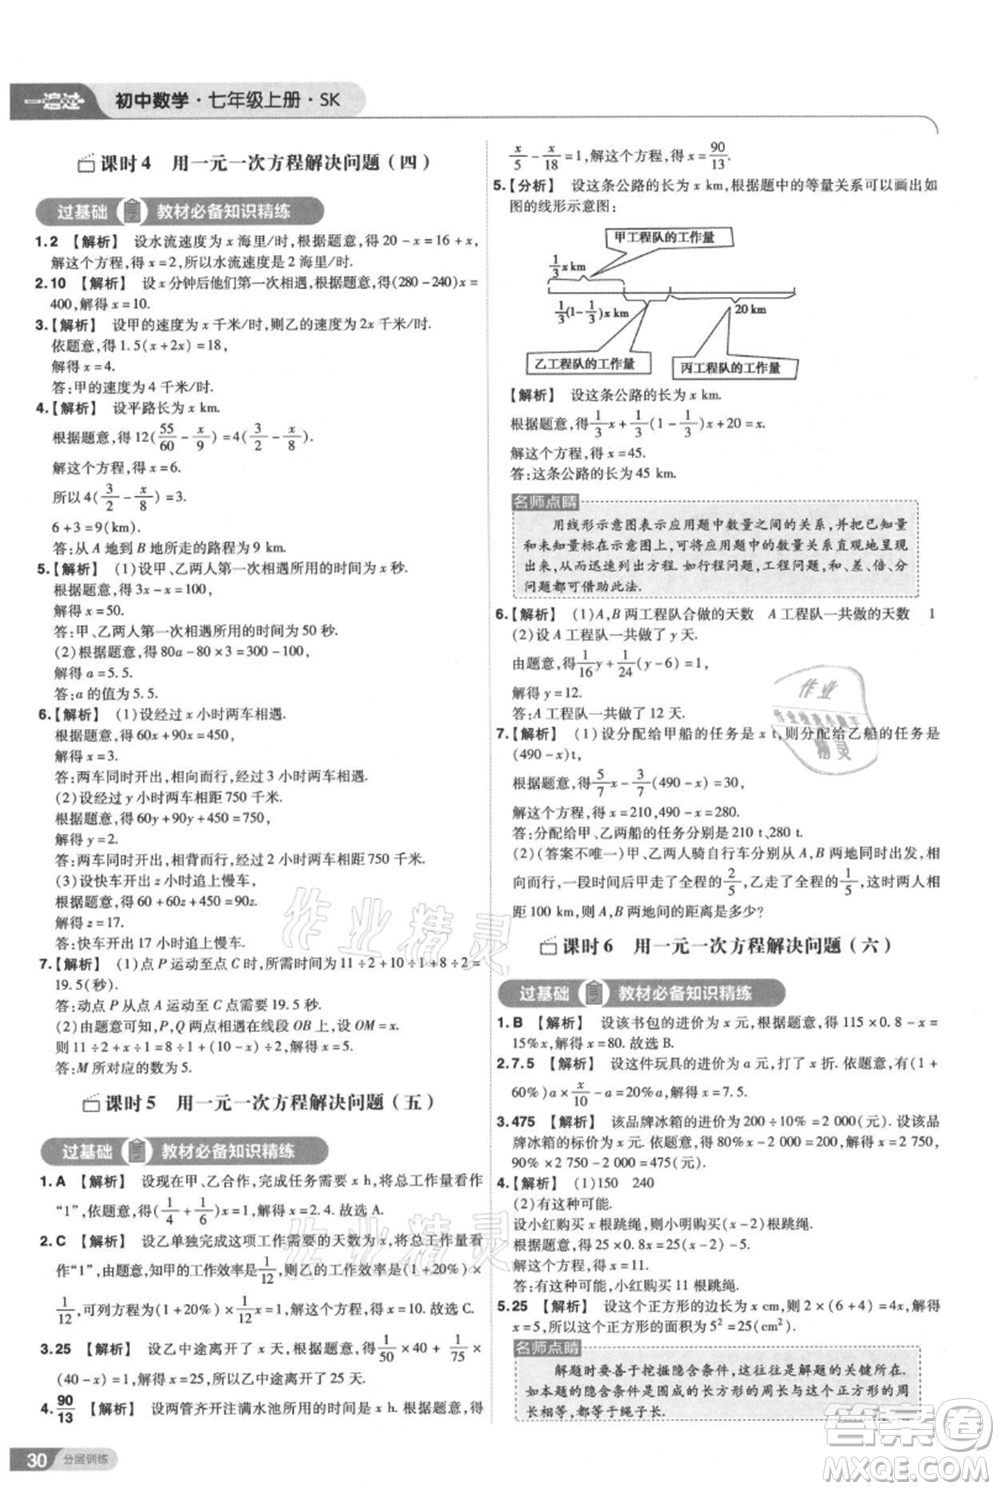 一遍过 初中数学·七年级上册·SK
课时4 用一元一次方程解决问题(四)
过基础 教材必备知识精练
1. 2 【解析】 设水流速度为 x 海里/时,根据题意,得 20-x=16+x,
解这个方程,得 x=2,所以水流速度为 2 海里/时.
2. 10 【解析】 设 x 分钟后他们第一次相遇,根据题意,得(280-240)x=
400,解得 x=10.
3.【解析】 设甲的速度为 x 千米/时,则乙的速度为 2x 千米/时.
依题意,得 1.5(x+2x)=18,
解得 x=4.
答:甲的速度为 4 千米/时.
4.【解析】 设平路长为 x km.
根据题意,得 12(55/60-x/9)=4(3/2-x/8),
解这个方程,得 x=6.
所以 4(3/2-x/8)=3.
6+3=9(km).
答:从 A 地到 B 地所走的路程为 9 km.
5.【解析】 (1)设甲、乙两人第一次相遇所用的时间为 x 秒.
根据题意,得 3x-x=100.
解得 x=50.
答:甲、乙两人第一次相遇所用的时间为 50 秒.
(2)根据题意,得 80a-80×3=200.
解得 a=5.5.
答:a 的值为 5.5.
6.【解析】 (1)设经过 x 小时两车相遇.
根据题意,得 60x+90x=450,
解得 x=3.
答:两车同时开出,相向而行,3 小时相遇.
(2)设经过 y 小时两车相距 750 千米.
根据题意,得 60y+90y+450=750,
解得 y=2.
答:两车同时开出,相背而行,2 小时两车相距 750 千米.
(3)设经过 z 小时快车追上慢车.
根据题意,得 60z+450=90z,
解得 z=15.
答:快车开出 15 小时追上慢车.
7.【解析】 (1)点 P 运动至点 C 时,所需时间为 11÷2+10÷1+8÷2=
19.5(秒).
答:动点 P 从点 A 运动至 C 点需要 19.5 秒.
(2)由题意可知,P,Q 两点在线段 OB 上相遇,设 OM=x.
则 11÷2+x÷1=8÷1+(10-x)÷2,解得 x=5.
答:M 所对应的数为 5.
课时5 用一元一次方程解决问题(五)
过基础 教材必备知识精练
1. A 【解析】 设现在甲、乙合作,完成任务需要 x h,将总工作量看作
“1”,依题意,得(1/4+1/6)x=1,解得 x=2.4.故选 A.
2. C 【解析】 设乙单独完成这项工作需要的天数为 x,将工作总量看
作“1”,由题意,知甲的工作效率是1/12,则乙的工作效率为(1/x-
1/12),可列方程为12/12+(1/x-1/12)×6=1.故选 C.
3. 25 【解析】 设乙中途离开了 x 天,根据题意,得1/50×40+1/50×
(40-x)=1,解得 x=25.即乙中途离开了 25 天.
4. 90/13 【解析】 设两管齐开注满水池所用的时间为 x h.根据题意,得
x/5-x/18=1,解这个方程,得 x=90/13.
5.【分析】 设这条公路的长为 x km,根据题中的等量关系可以画出如
图的线形示意图:
甲工程队的工作量
1/3 x km
1/3(1-1/3)x km
20 km
乙工程队的工作量 丙工程队的工作量
【解析】 设这条公路的长为 x km.
根据题意,得1/3x+1/3(1-1/3)x+20=x.
解这个方程,得 x=45.
答:这条公路的长为 45 km.
名师点睛
用线形示意图表示应用题中数量之间的关系,并把已知量
和未知量标在示意图上,可将应用题中的数量关系直观地呈现
出来,从而迅速列出方程.如行程问题,工程问题,和、差、倍、分
问题都可借助此法.
6.【解析】 (1)A,B 两工程队合做的天数 A 工程队一共做的天数 1
(2)设 A 工程队一共做了 y 天.
由题意,得1/16y+1/24(y-6)=1,
解得 y=12.
答:A 工程队一共做了 12 天.
7.【解析】 (1)设分配给甲船的任务是 x t,则分配给乙船的任务是
(490-x)t,
根据题意,得5/7x-3/7(490-x)=30,
解这个方程,得 x=210,490-x=280.
答:分配给甲、乙两船的任务分别是 210 t、280 t.
(2)(答案不唯一)甲、乙两人骑自行车分别从 A,B 两地同时出发,相
向而行,经过一段时间后甲走了全程的2/5,乙走了全程的1/5,这时两人
相距 100 km,则 A,B 两地间的距离是多少?
课时6 用一元一次方程解决问题(六)
过基础 教材必备知识精练
1. B 【解析】 设该书包的进价为 x 元,根据题意,得 115×0.8-x=
15%x,解得 x=80.故选 B.
2. 7.5 【解析】 设这件玩具的进价为 a 元,打了 x 折.依题意,有 a(1+
60%)×x/10-a=20%a,解得 x=7.5.
3. 475 【解析】 该品牌冰箱的进价为 200÷10%=2 000(元).设该品
牌冰箱的标价为 x 元,由题意,得 80%x-2 000=200,解得 x=2 750,
90%×2 750-2 000=475(元).
4.【解析】 (1)150 240
(2)有这种可能.
设小红购买 x 根跳绳,则小明购买(x-2)根跳绳.
根据题意,得 25x×0.8=25(x-2)-5,
解这个方程,得 x=11.
答:有这种可能,小红购买 11 根跳绳.
5. 25 【解析】 设这个正方形的边长为 x cm,则 2×(6+4)=4x,解得
x=5,所以这个正方形的面积为 5²=25(cm²).
名师点睛
解题时要善于挖掘隐含条件,这往往是解题的关键所在.
如本题的隐含条件是围成的长方形的周长与正方形的周
长相等,都等于绳子长.
30 分层训练
作业精灵
作业精灵
作业
作业检查小助手
精灵
答案圈
MXQE.COM